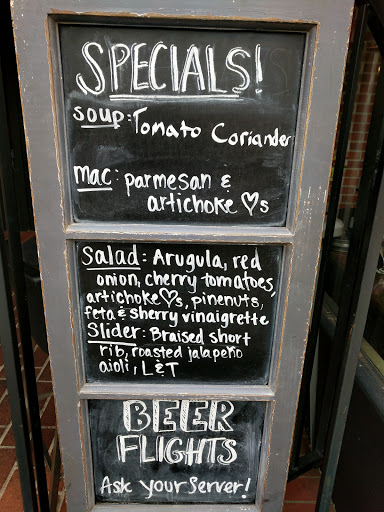 SPECIALS!
soup: Tomato Coriander
mac: parmesan &
artichoke ♡s
Salad: Arugula, red
onion, cherry tomatoes,
artichoke♡s, pinenuts,
feta & sherry vinaigrette
Slider: Braised short
rib, roasted jalapeño
aioli, L&T
BEER
FLIGHTS
Ask your Server!